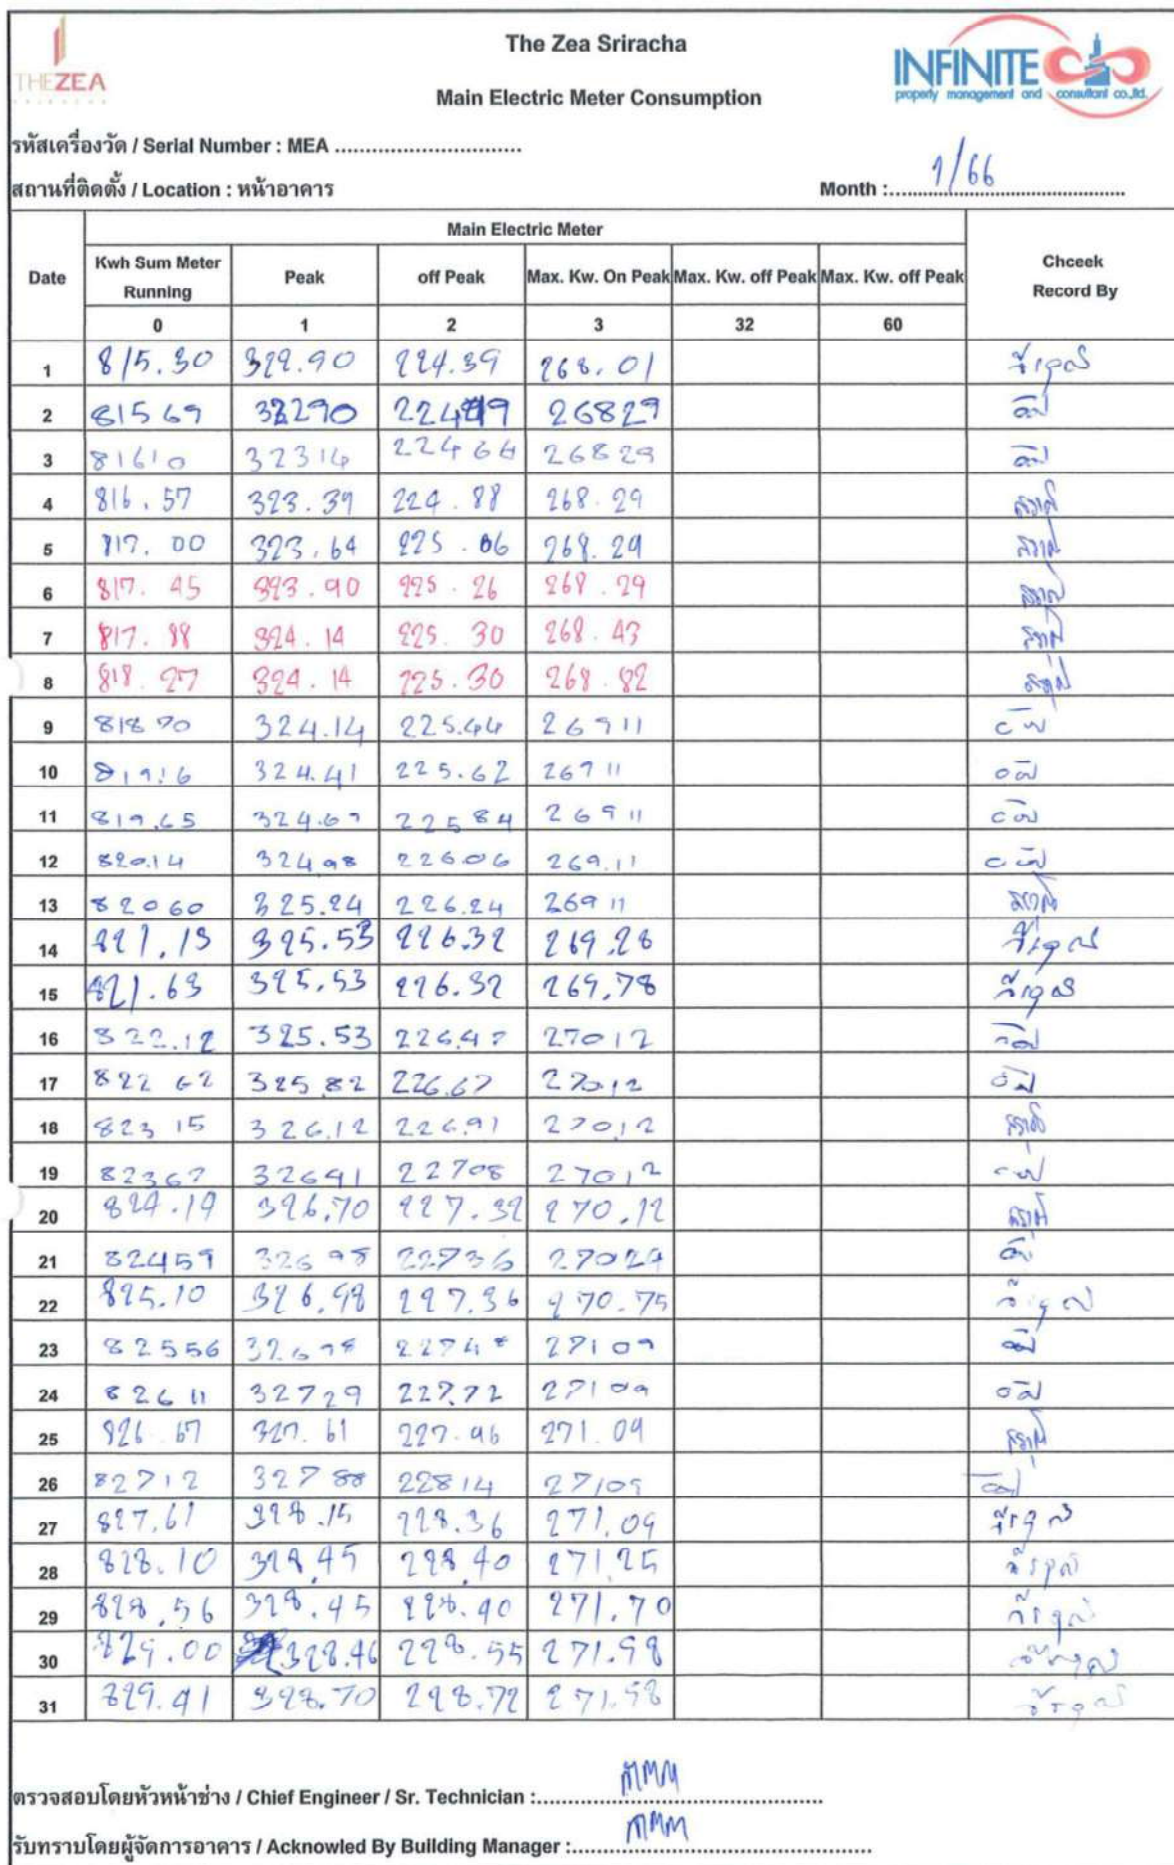 THE ZEA
SRIRACHA
The Zea Sriracha
Main Electric Meter Consumption
INFINITE
property management and consultant co.,ltd.
รหัสเครื่องวัด / Serial Number : MEA ..............................
สถานที่ติดตั้ง / Location : หน้าอาคาร
Month :.....1/66.....
Main Electric Meter
Date Kwh Sum Meter Running Peak off Peak Max. Kw. On Peak Max. Kw. off Peak Max. Kw. off Peak Chceek Record By
0 1 2 3 32 60
1 815.30 322.90 224.39 268.01
2 81569 32290 22449 26829
3 81610 32314 22466 26829
4 816.57 323.39 224.88 268.29
5 817.00 323.64 225.06 268.29
6 817.45 323.90 225.26 268.29
7 817.88 324.14 225.30 268.43
8 818.27 324.14 225.30 268.82
9 81870 324.14 225.44 26911
10 819.16 324.41 225.62 26911
11 819.65 324.69 22584 26911
12 820.14 32498 22606 269.11
13 82060 325.24 226.24 26911
14 821.13 325.53 226.32 269.28
15 821.63 325.53 226.32 269.78
16 822.12 325.53 226.47 27012
17 82262 32582 226.67 27012
18 82315 326.12 226.91 270,12
19 82367 32641 22708 27012
20 824.19 326.70 227.32 270.12
21 82459 32698 22736 27024
22 825.10 326.98 227.36 270.75
23 82556 32698 22748 27109
24 82611 32729 227.72 27109
25 826.67 327.61 227.96 271.09
26 82712 32788 22814 27109
27 827.61 328.15 228.36 271.09
28 828.10 328.45 228.40 271.25
29 828.56 328.45 228.40 271.70
30 829.00 328.46 228.55 271.98
31 829.41 328.70 228.72 271.98
ตรวจสอบโดยหัวหน้าช่าง / Chief Engineer / Sr. Technician :..............................
รับทราบโดยผู้จัดการอาคาร / Acknowled By Building Manager :..............................